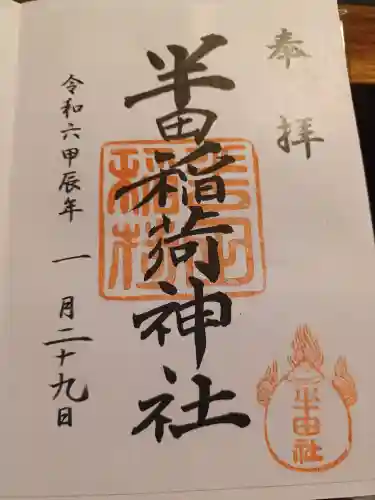 奉拝
半田稲荷神社
令和六甲辰年一月二十九日
半田社